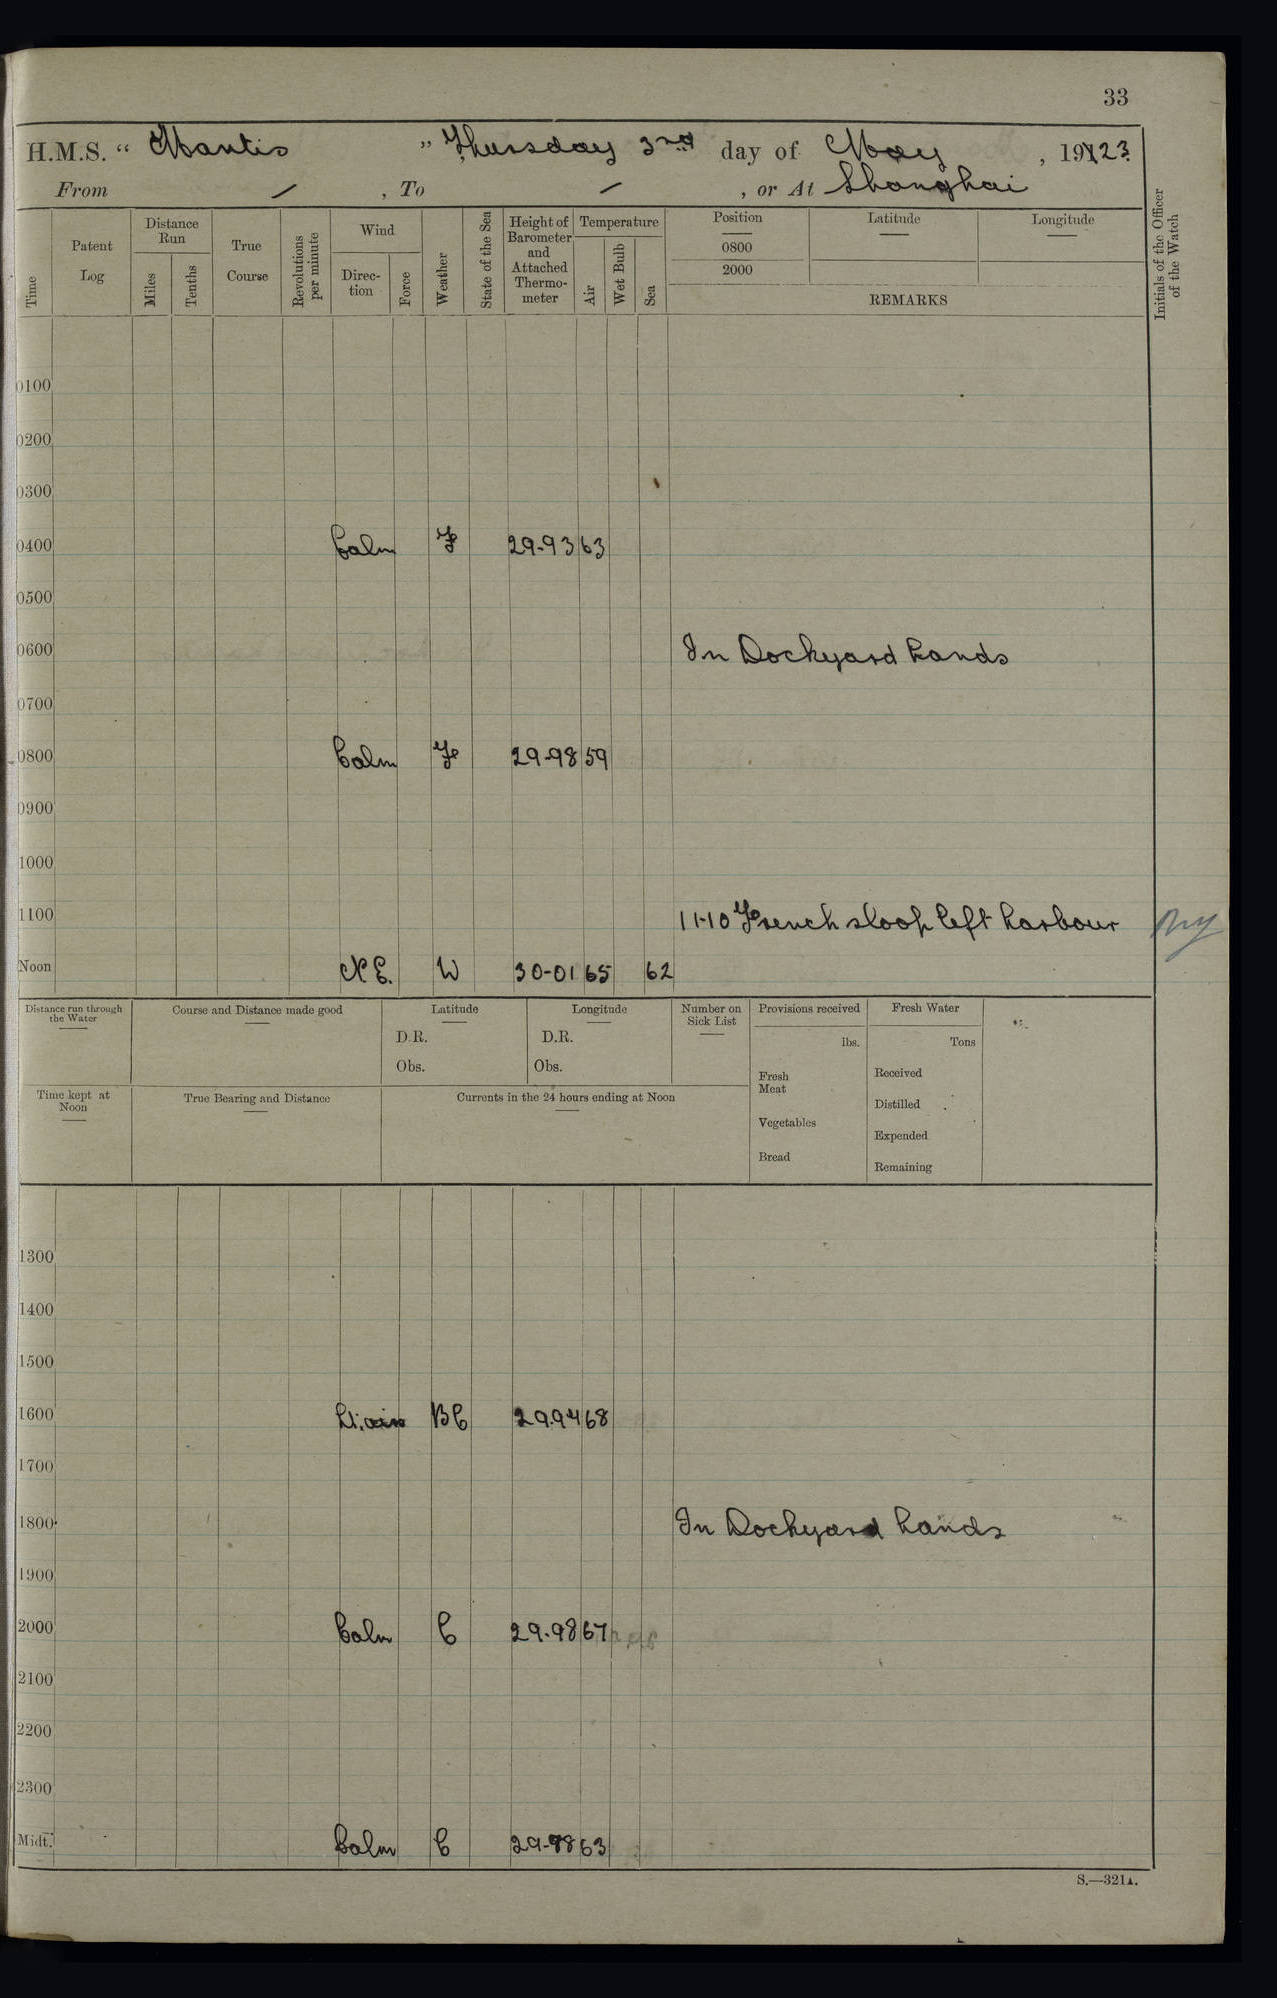 33
H.M.S. “ Mantis ” Thursday 3rd day of May , 1923.
From / , To / , or At Shanghai
Time
Patent Log
Distance Run
Miles
Tenths
True Course
Revolutions per minute
Wind
Direc-tion
Force
Weather
State of the Sea
Height of Barometer and Attached Thermo-meter
Temperature
Air
Wet Bulb
Sea
Position
0800
2000
Latitude
Longitude
REMARKS
Initials of the Officer of the Watch
0100
0200
0300
0400 Calm F 29.93 63
0500
0600 In Dockyard hands
0700
0800 Calm F 29.98 59
0900
1000
1100 11-10 French sloop left harbour
Noon N E. W 30-01 65 62
Distance run through the Water
Course and Distance made good
Latitude
D.R.
Obs.
Longitude
D.R.
Obs.
Number on Sick List
Provisions received
lbs.
Fresh Meat
Vegetables
Bread
Fresh Water
Tons
Received
Distilled
Expended
Remaining
Time kept at Noon
True Bearing and Distance
Currents in the 24 hours ending at Noon
1300
1400
1500
1600 Lt. airs BC 29.94 68
1700
1800 In Dockyard hands
1900
2000 Calm C 29.98 67
2100
2200
2300
Midt. Calm C 29-98 63
S.—321A.